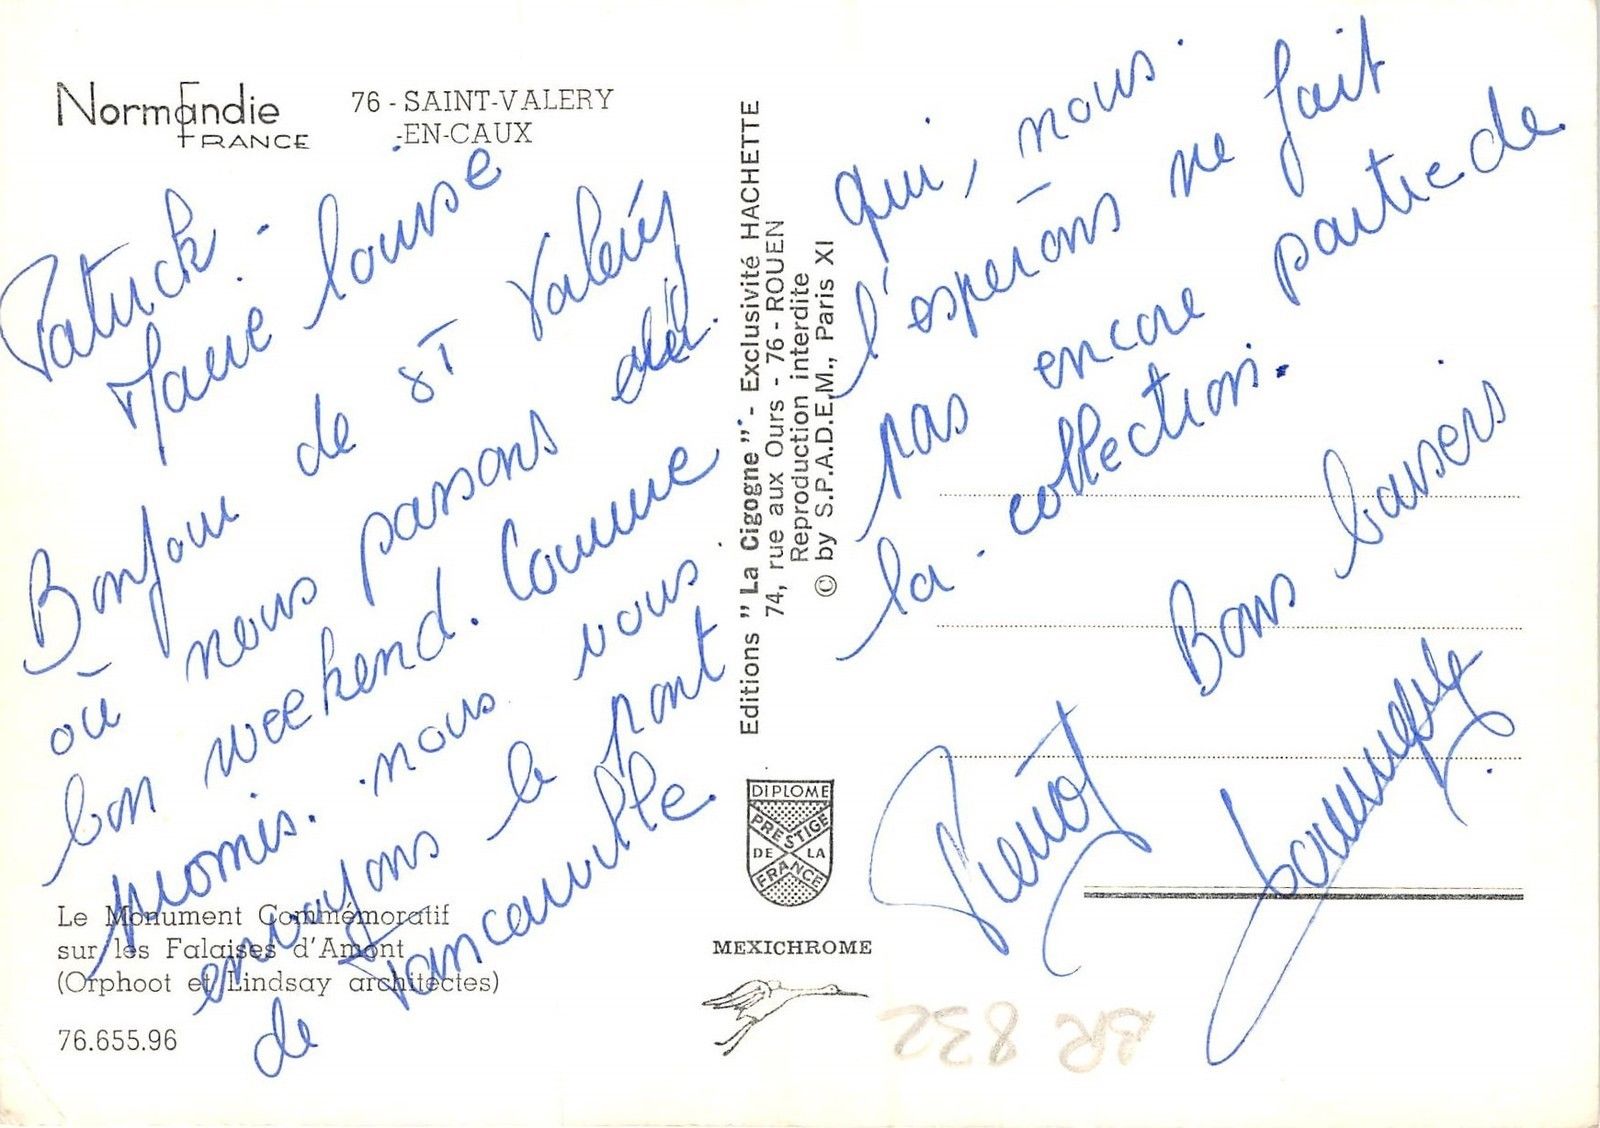 Normandie
FRANCE
76 - SAINT-VALERY
-EN-CAUX
Patrick -
Marie Louise
Bonjour de ST Valéry
où nous passons
bon weekend. Comme
promis. nous vous
envoyons le pont
de Tancarville.
Le Monument Commémoratif
sur les Falaises d'Amont
(Orphoot et Lindsay architectes)
76.655.96
Editions "La Cigogne" - Exclusivité HACHETTE
74, rue aux Ours - 76 - ROUEN
Reproduction interdite
© by S.P.A.D.E.M., Paris XI
DIPLOME
PRESTIGE
DE LA
FRANCE
MEXICHROME
qui, nous
l'esperons ne fait
pas encore partie de
la collection.
Bons baisers
BR 832